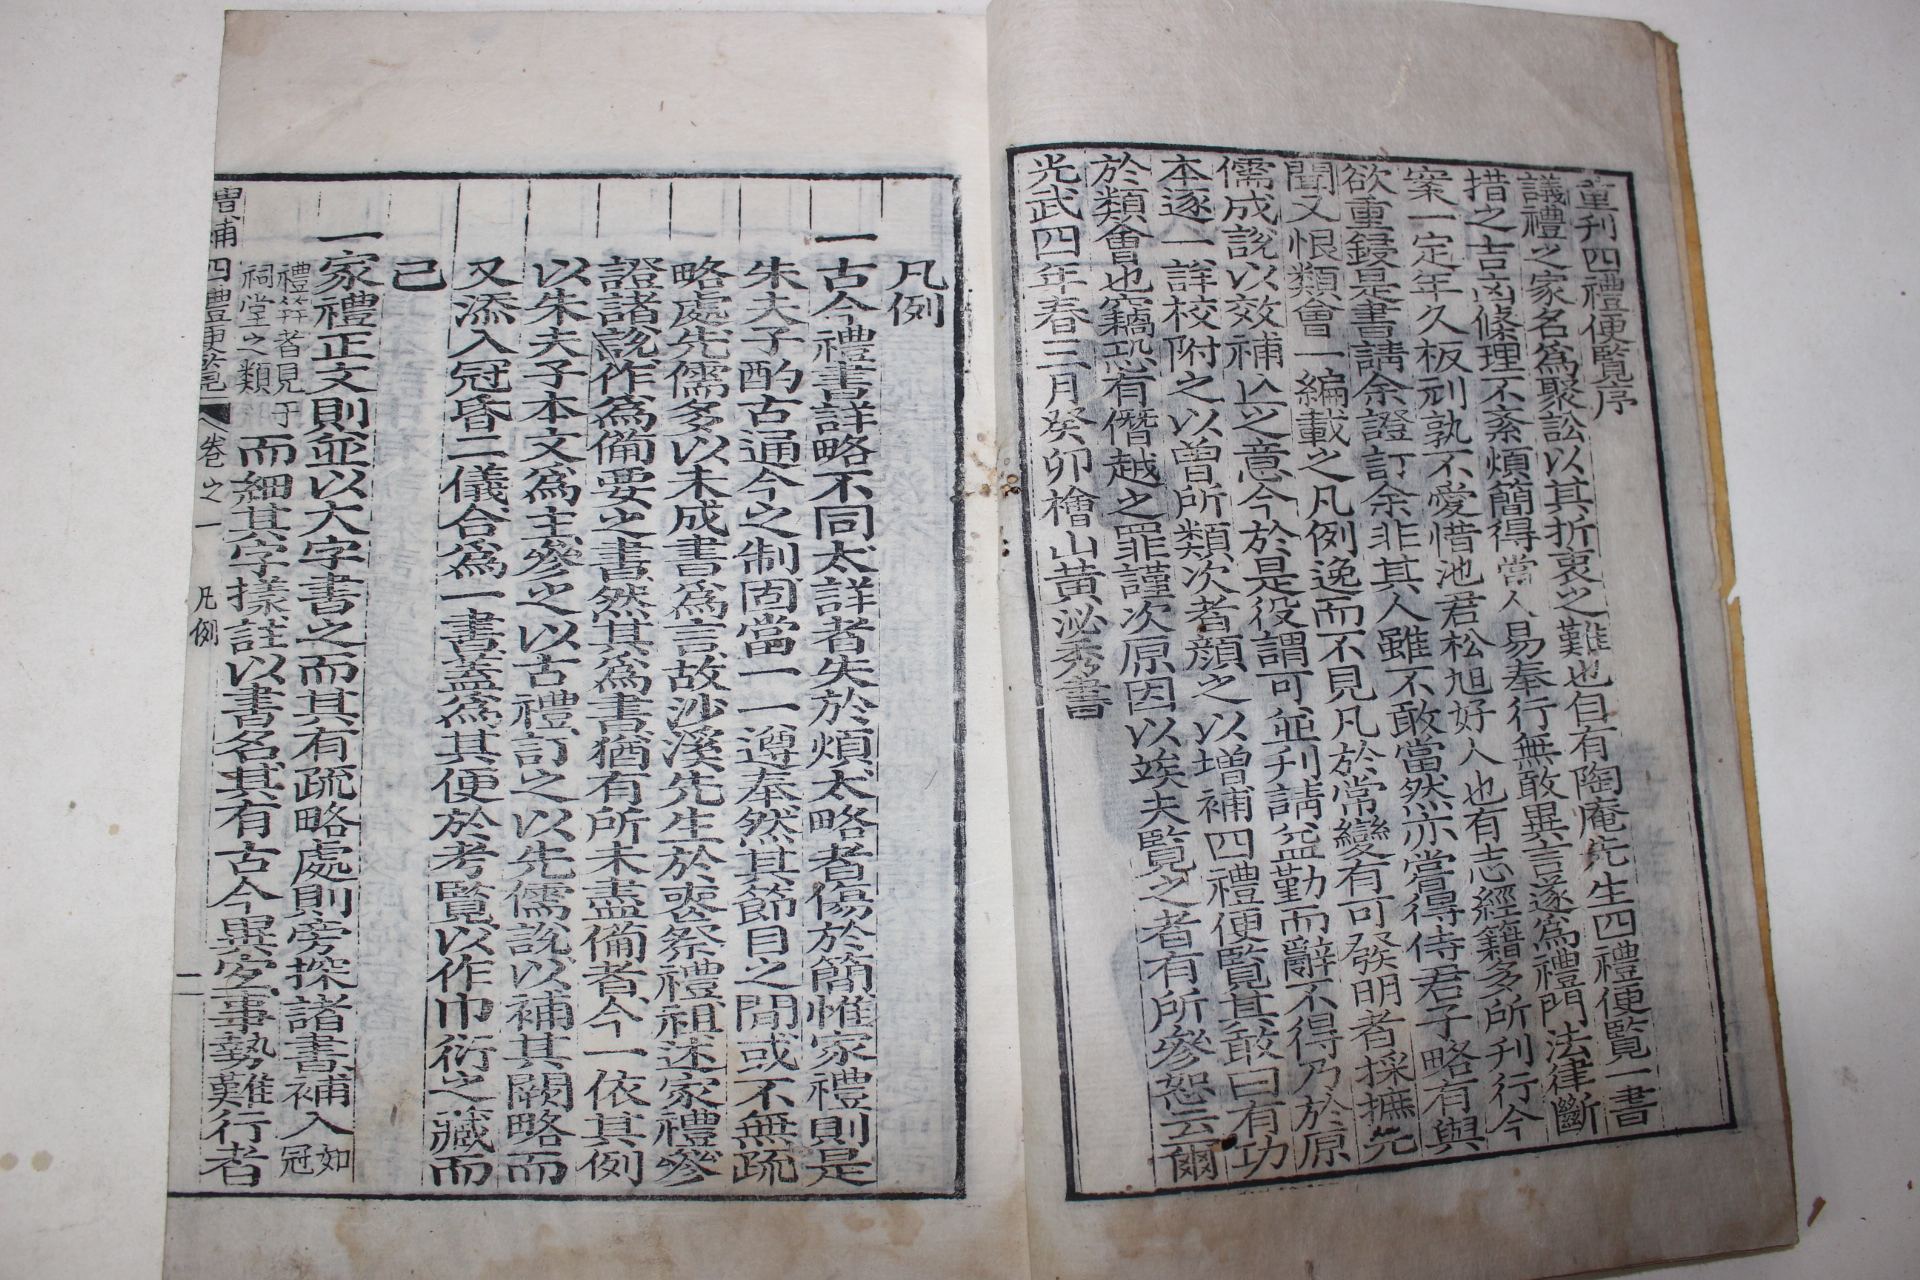 重刊四禮便覽序
議禮之家名爲聚訟以其折衷之難也自有陶庵先生四禮便覽一書
措之吉凶條理不紊煩簡得當人易奉行無敢異言遂爲禮門法律斷
案一定年久板刓孰不愛惜池君松旭好人也有志經籍多所刊行今
欲重鋟是書請余證訂余非其人雖不敢當然亦嘗得侍君子略有與
聞又恨類會一編載之凡例逸而不見凡於常變有可發明者採摭先
儒成說以效補亡之意今於是役謂可並刊請益勤而辭不得乃於原
本逐一詳校附之以曾所類次者顔之以增補四禮便覽其敢曰有功
於類會也竊恐有僭越之罪謹次原因以竢夫覽之者有所參恕云爾
光武四年春三月癸卯檜山黃泌秀書
凡例
一古今禮書詳略不同太詳者失於煩太略者傷於簡惟家禮則是
朱夫子酌古通今之制固當一一遵奉然其節目之間或不無疏
略處先儒多以未成書爲言故沙溪先生於喪祭禮祖述家禮參
證諸說作爲備要之書然其爲書猶有所未盡備者今一依其例
以朱夫子本文爲主參之以古禮訂之以先儒說以補其闕略而
又添入冠昏二儀合爲一書蓋爲其便於考覽以作巾衍之藏而
已
一家禮正文則並以大字書之而其有疏略處則旁探諸書補入如冠
禮笄者見于祠堂之類而細其字樣註以書名其有古今異宜事勢難行者
增補四禮便覽 卷之一 凡例 二